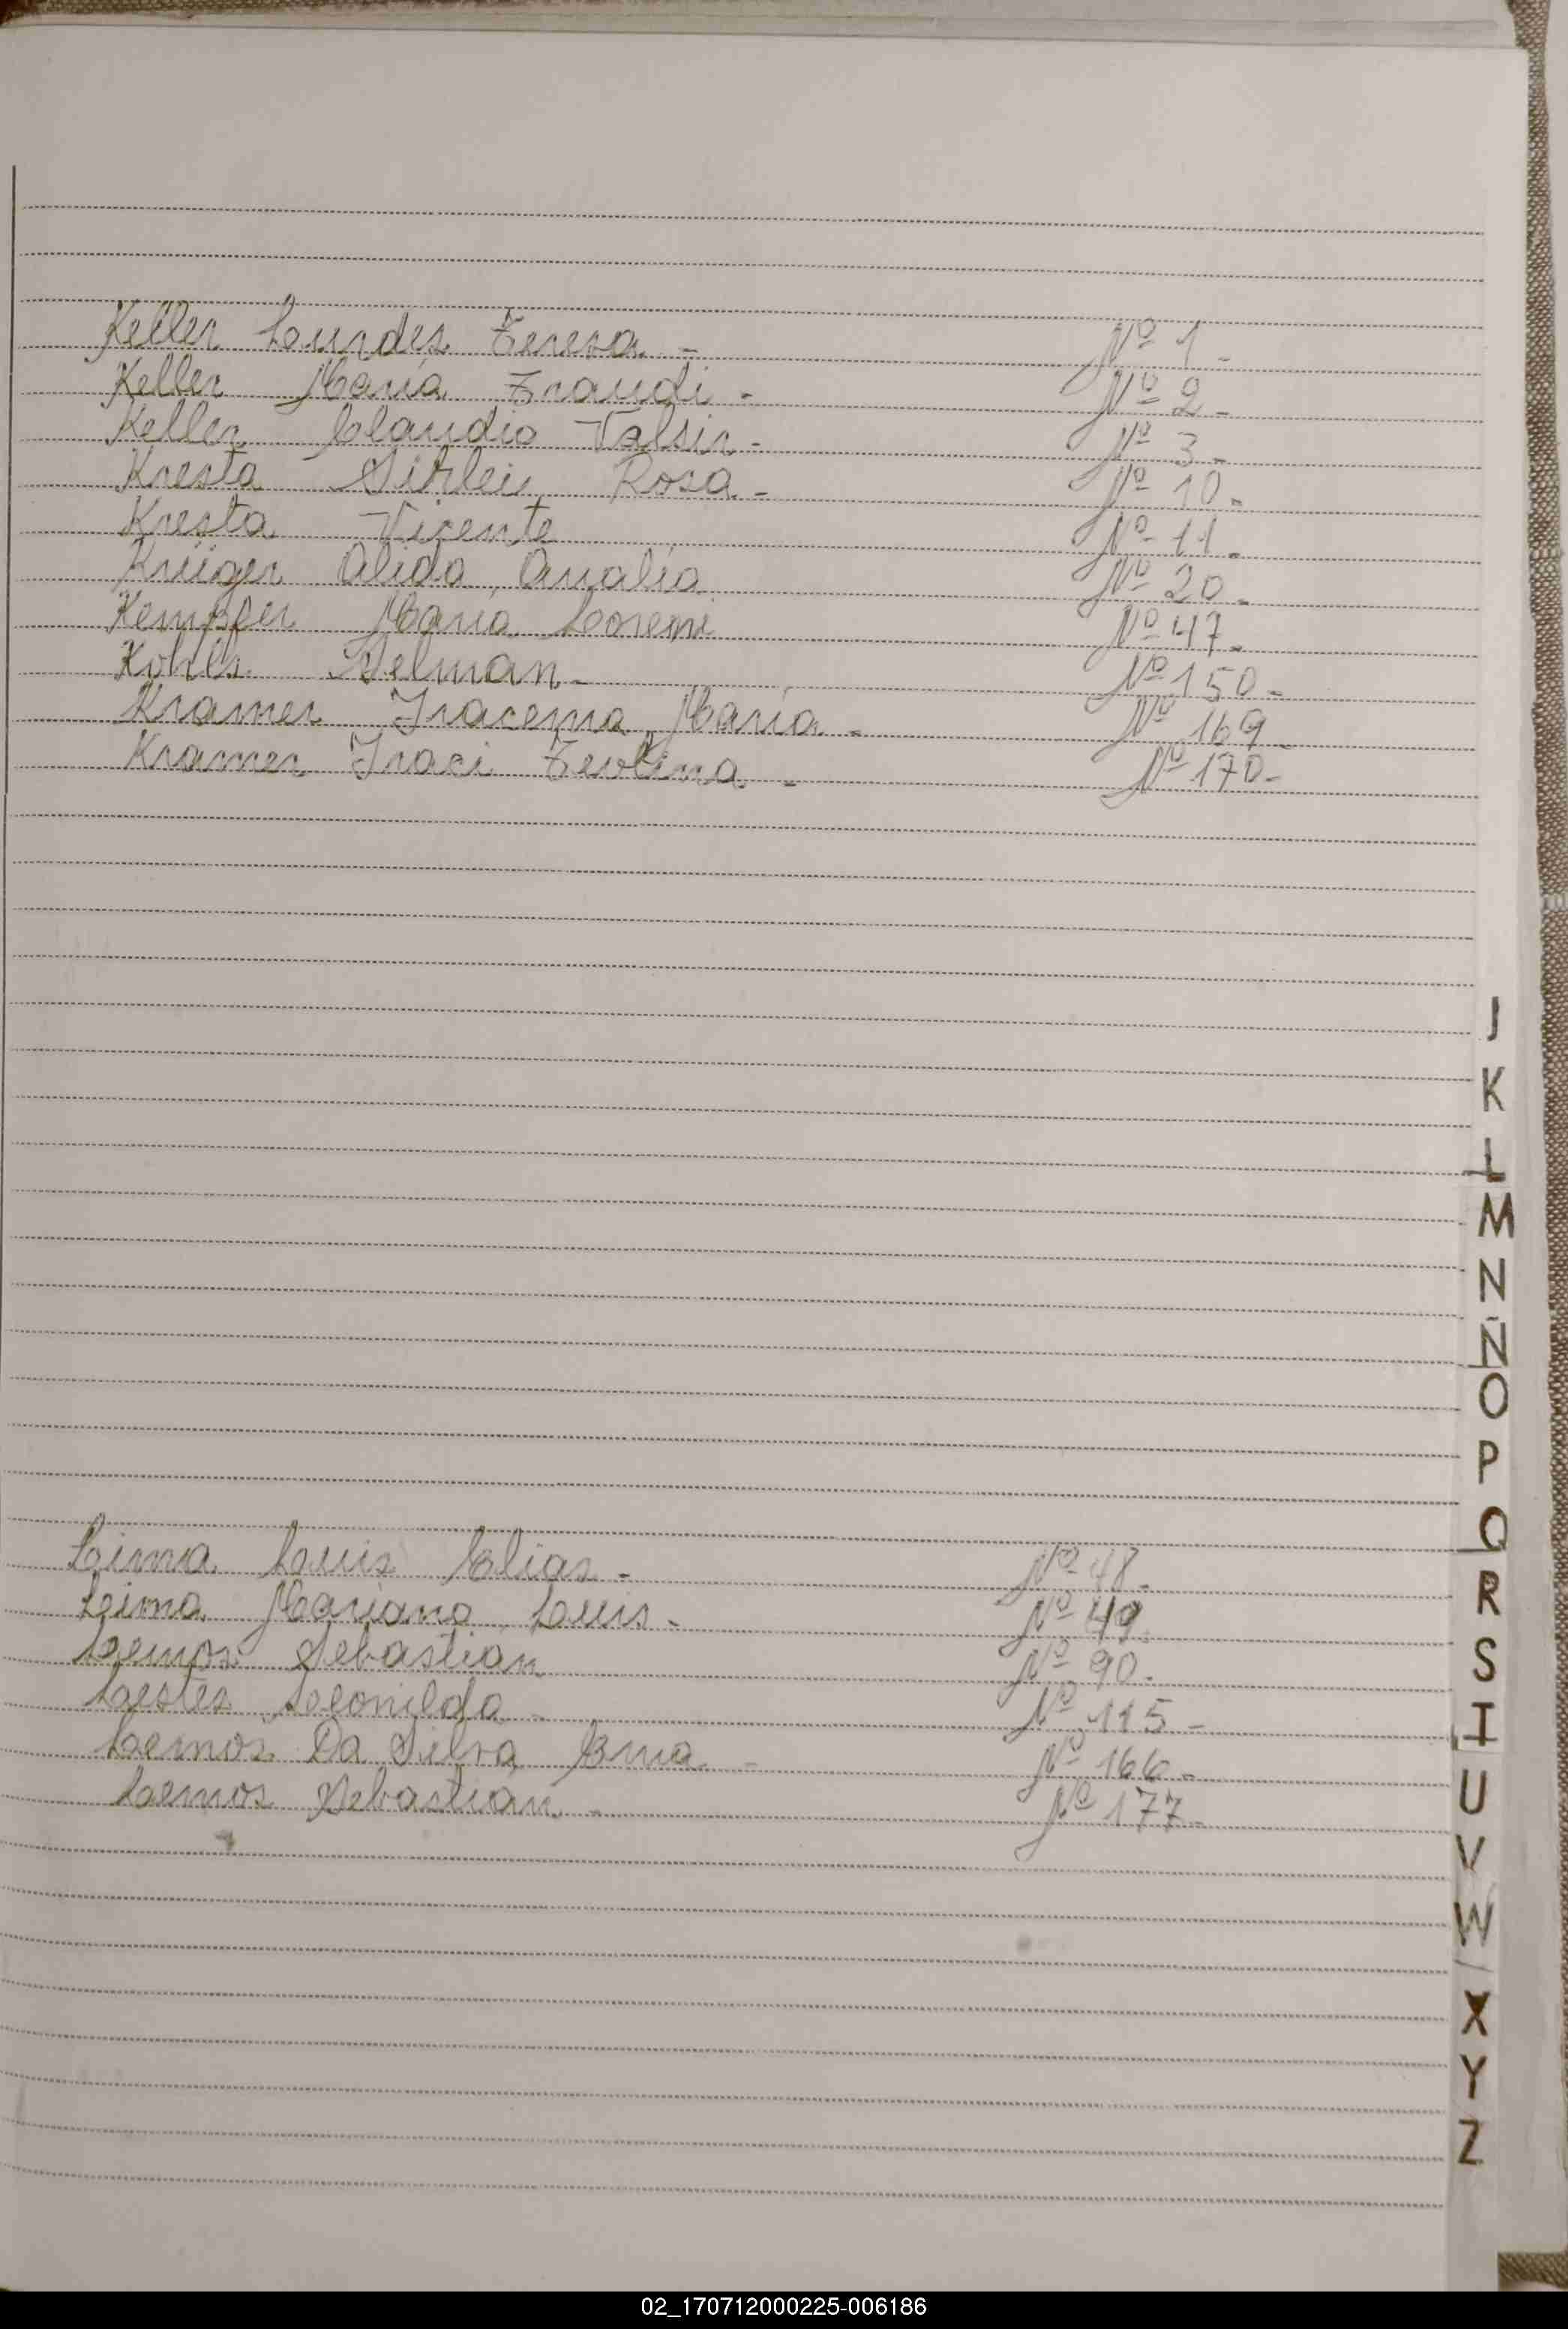 Keller Lourdes Teresa - Nº 1 -
Keller María Traudi - Nº 2 -
Keller Claudio Valsir - Nº 3 -
Kresta Sirlei Rosa - Nº 10 -
Kresta Vicente Nº 11 -
Krüger Alida Analía Nº 20 -
Kempfer María Loreni Nº 47 -
Kohls Selman - Nº 150 -
Kramer Iracema María - Nº 169 -
Kramer Iraci - Nº 170 -
J
K
L
M
N
Ñ
O
P
Q
Lima Luis Elias - Nº 48 -
R
Lima Mariano Luis - Nº 49
Lemos Sebastian Nº 90 -
S
Leonilda - Nº 115 -
I
Lemos Da Silva - Nº 166 -
Lemos Sebastián - Nº 177 -
U
V
W
X
Y
Z
02_170712000225-006186